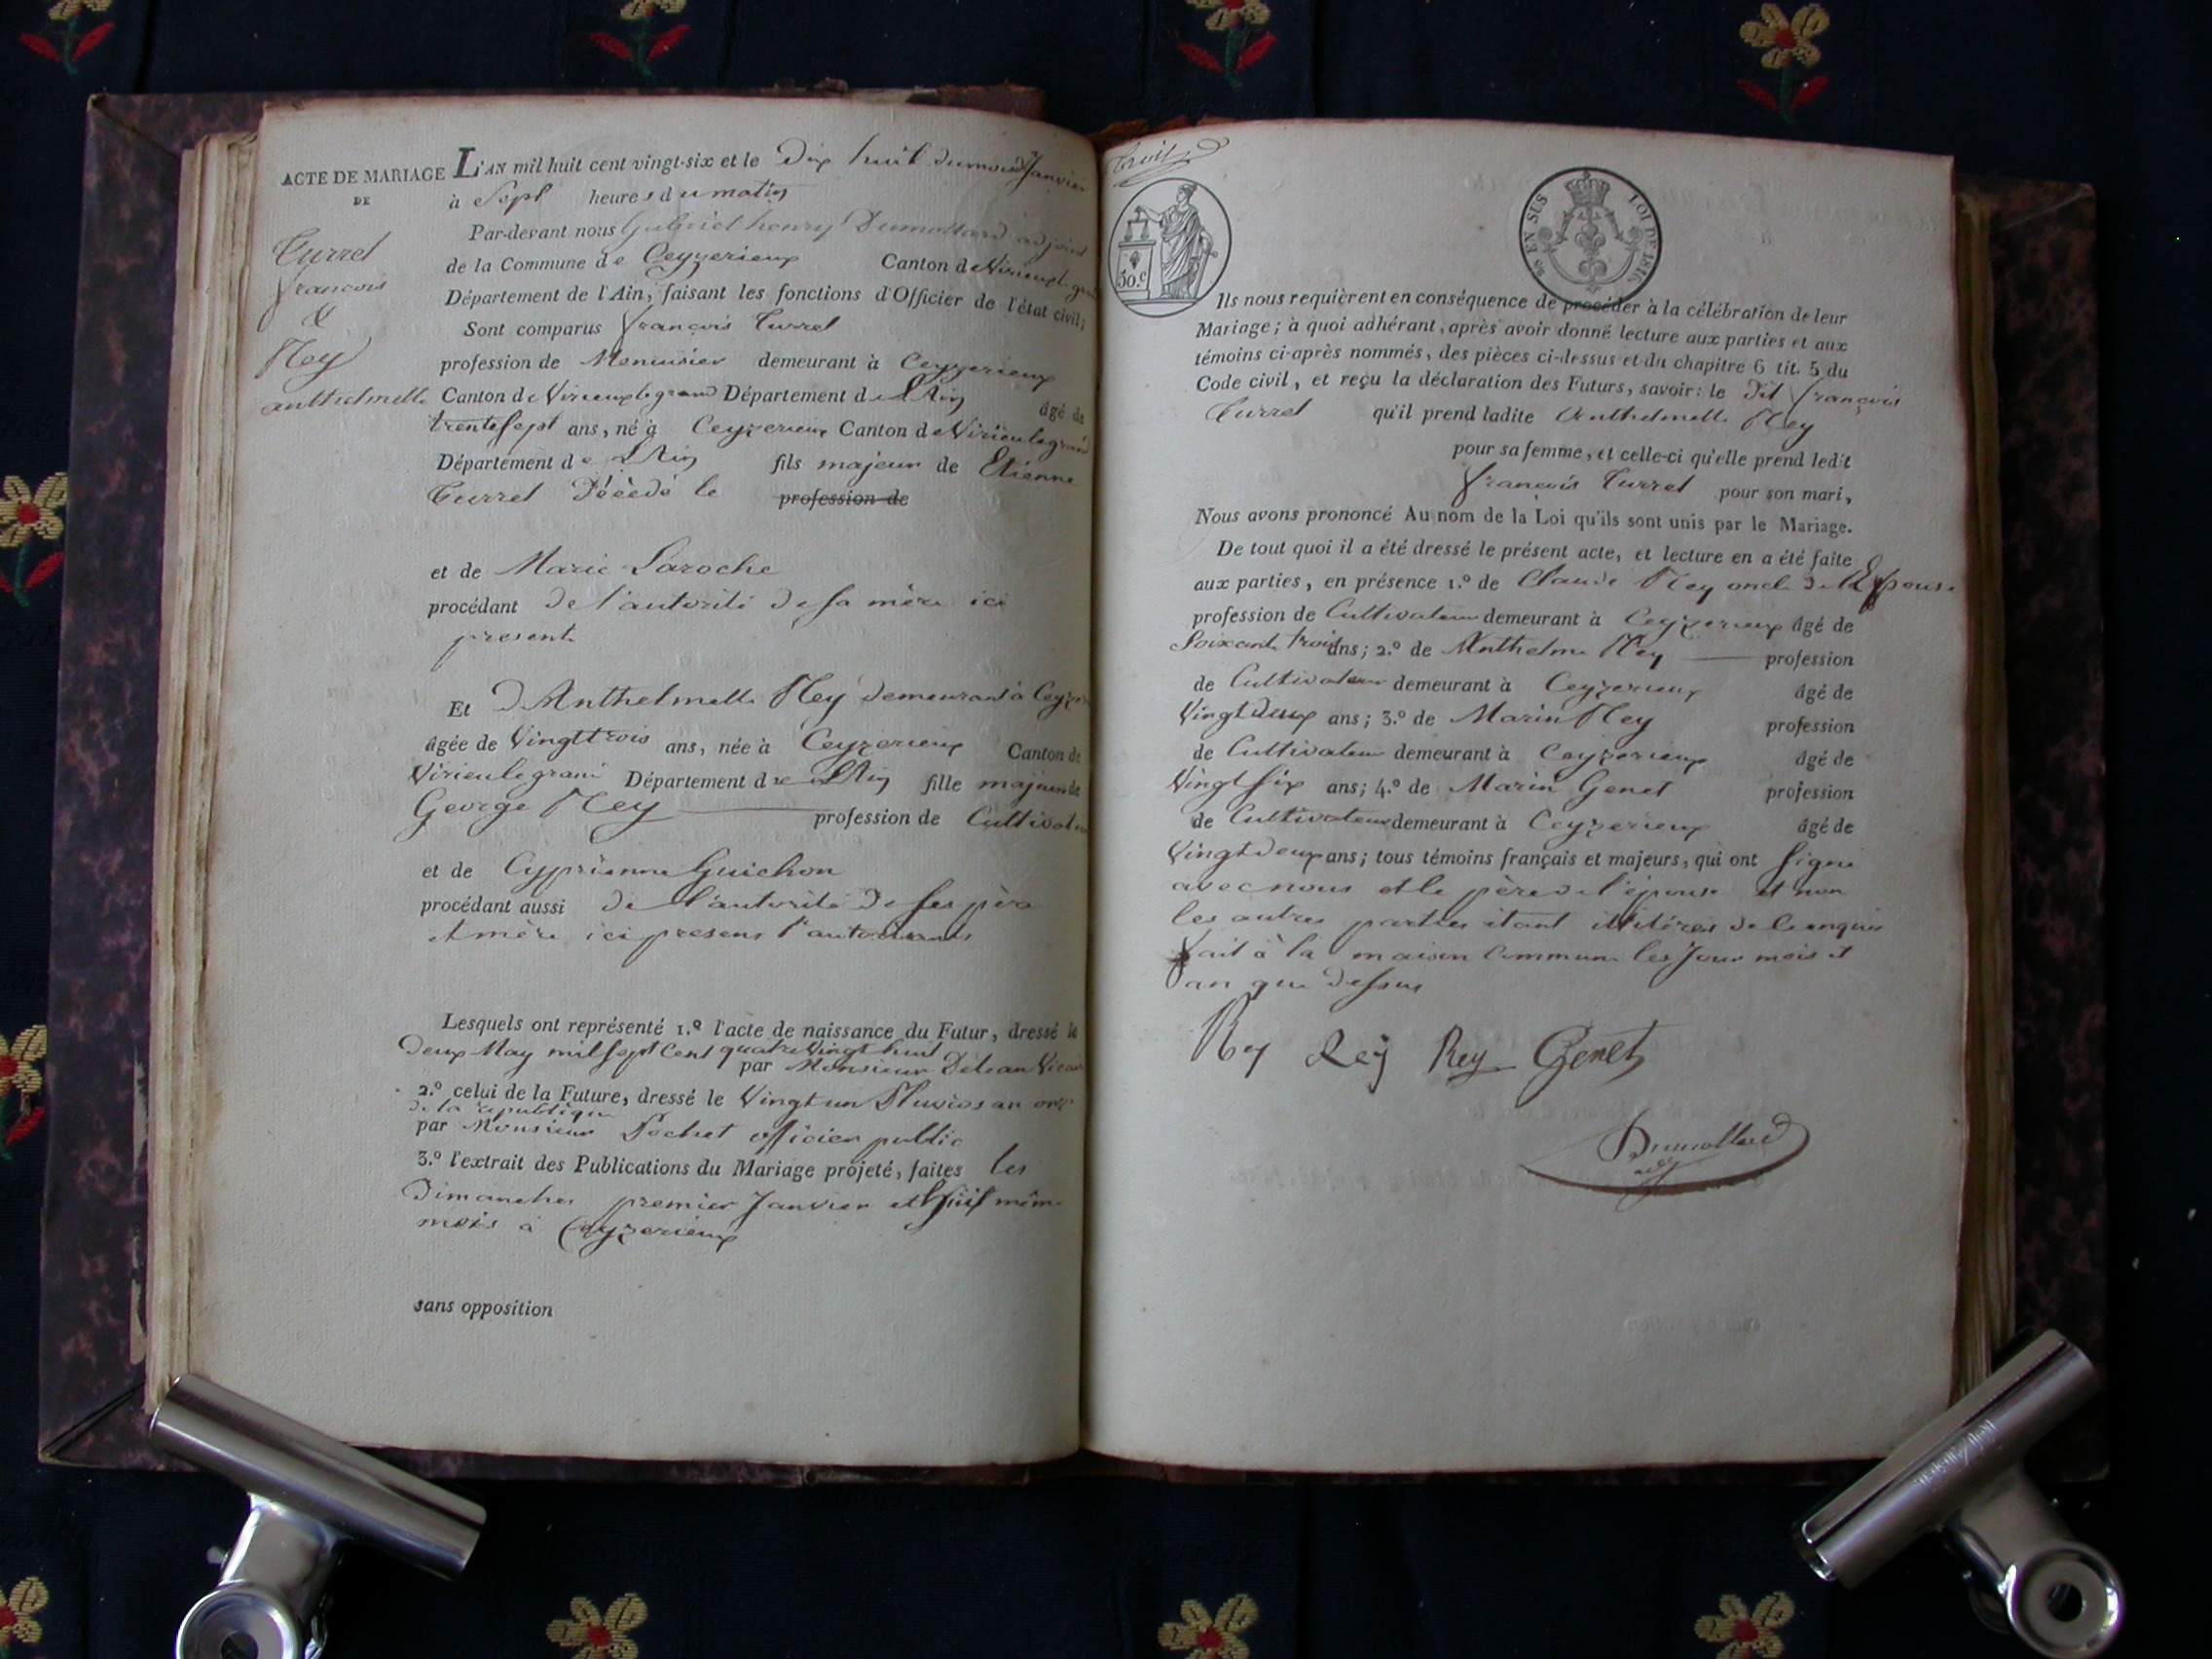 ACTE DE MARIAGE
DE
Turrel
françois
&
Rey
anthelmette
L'AN mil huit cent vingt-six et le Dix huit du mois Janvier
à Sept heures du matin
Par-devant nous Gabriel henry Dumollard adjoint
de la Commune de Ceyzerieux Canton de Virieux le grand
Département de l'Ain, faisant les fonctions d'Officier de l'état civil;
Sont comparus françois Turrel
profession de Menuisier demeurant à Ceyzerieux
Canton de Virieux le grand Département de L'Ain âgé de
trente sept ans, né à Ceyzerieux Canton de Virieu le grand
Département de L'Ain fils majeur de Etienne
Turrel Décèdé le profession de
et de Marie Laroche
procédant de l'autorité de sa mère ici
presente
Et D'Anthelmette Rey demeurant à Ceyze
âgée de Vingt trois ans, née à Ceyzerieux Canton de
Virieu le grand Département de L'Ain fille majeure de
George Rey profession de Cultivateur
et de Cyprienne Guichon
procédant aussi de l'autorité de ses père
et mère ici presens l'autorisants
Lesquels ont représenté 1.º l'acte de naissance du Futur, dressé le
Deux May mil sept Cent quatre Vingt huit
par Monsieur
2.º celui de la Future, dressé le Vingt un Pluvios an onze
de la republique
par Monsieur Pochet officier public
3.º l'extrait des Publications du Mariage projeté, faites les
Dimanches premier Janvier et huit même
mois à Ceyzerieux
sans opposition
trois
50 c
EN SUS
LOI DE 1816
Ils nous requièrent en conséquence de procéder à la célébration de leur
Mariage; à quoi adhérant, après avoir donné lecture aux parties et aux
témoins ci-après nommés, des pièces ci-dessus et du chapitre 6 tit. 5 du
Code civil, et reçu la déclaration des Futurs, savoir: le Dit françois
Turrel qu'il prend ladite Anthelmette Rey
pour sa femme, et celle-ci qu'elle prend ledit
françois Turrel pour son mari,
Nous avons prononcé Au nom de la Loi qu'ils sont unis par le Mariage.
De tout quoi il a été dressé le présent acte, et lecture en a été faite
aux parties, en présence 1.º de Claude Rey oncle de L'Epouse
profession de Cultivateur demeurant à Ceyzerieux âgé de
Soixante trois ans; 2.º de Anthelme Rey profession
de Cultivateur demeurant à Ceyzerieux âgé de
Vingt deux ans; 3.º de Marin Rey profession
de Cultivateur demeurant à Ceyzerieux âgé de
Vingt six ans; 4.º de Marin Genet profession
de Cultivateur demeurant à Ceyzerieux âgé de
Vingt deux ans; tous témoins français et majeurs, qui ont signé
avec nous et le père de l'épouse et non
les autres parties étant illitéres de ce enquis
fait à la maison Commune les Jour mois et
an que dessus
Rey Rey Rey Genet
Dumollard
adj